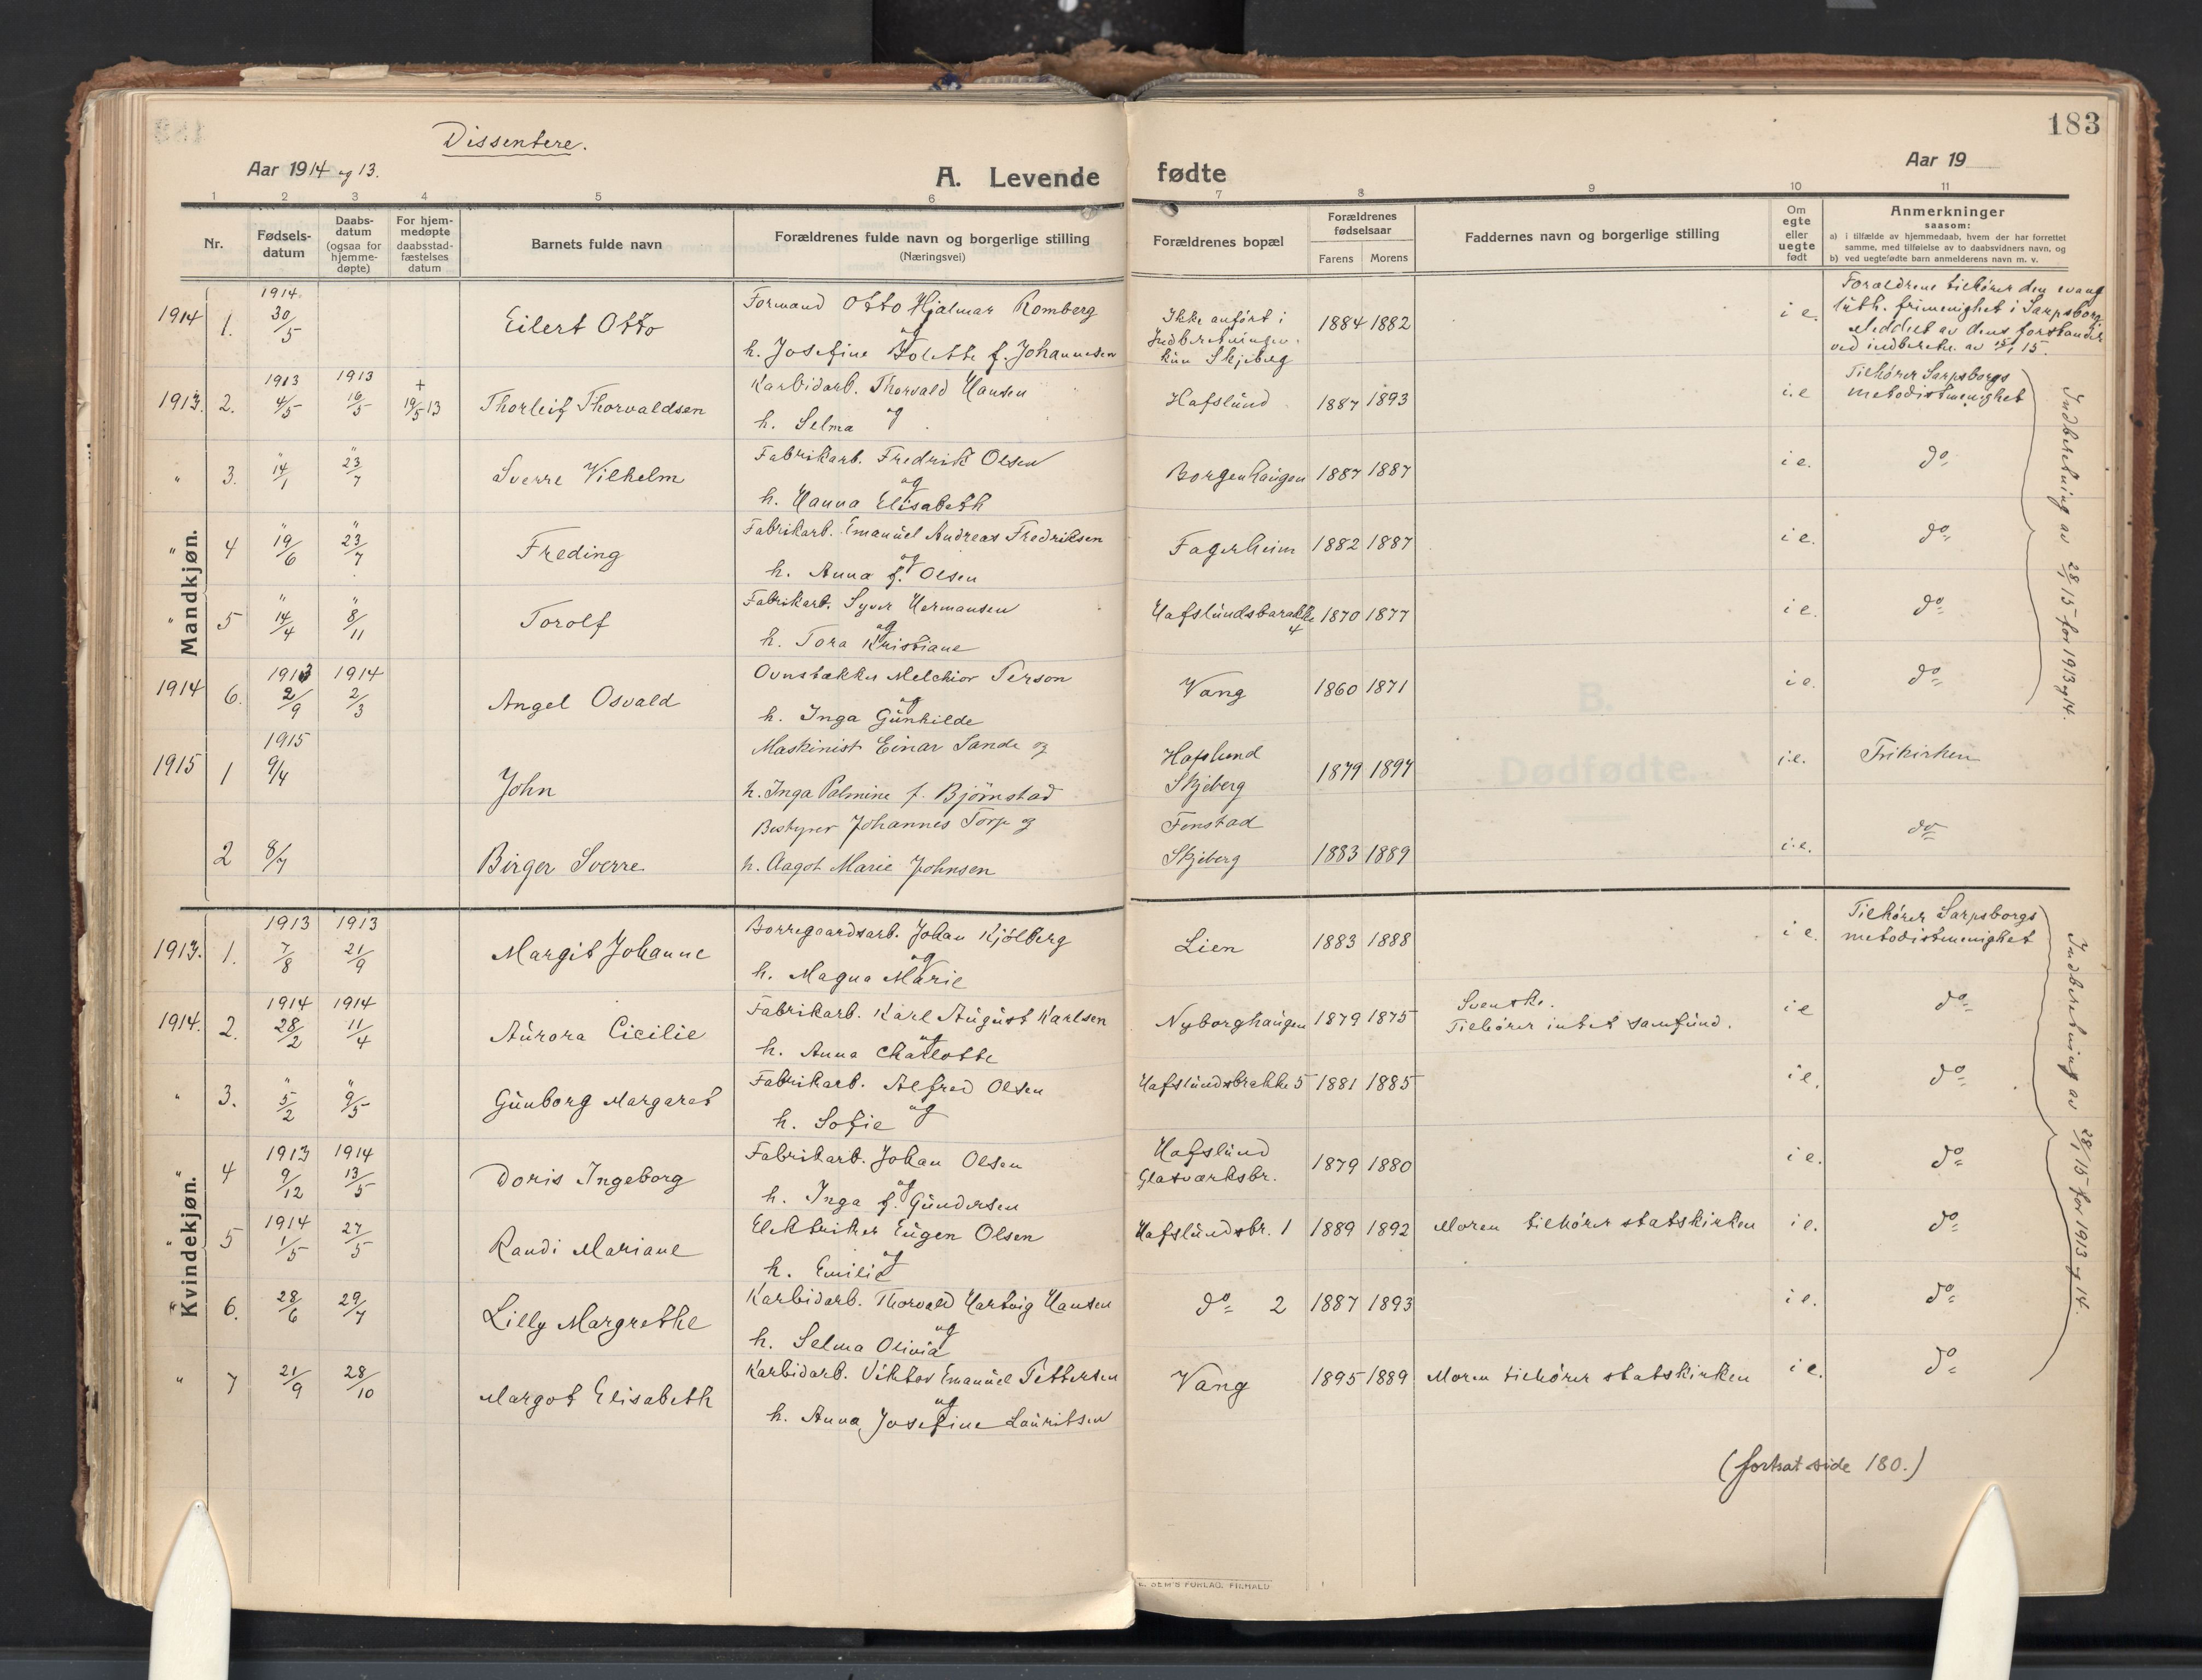 183
Dissentere.
Aar 1914 og 13.
Aar 19
A. Levende fødte
1 2 3 4 5 6 7 8 9 10 11
Nr.
Fødsels-
datum
Daabs-
datum
(ogsaa for
hjemme-
døpte)
For hjem-
medøpte
daabsstad-
fæstelses
datum
Barnets fulde navn
Forældrenes fulde navn og borgerlige stilling
(Næringsvei)
Forældrenes bopæl
Forældrenes
fødselsaar
Farens Morens
Faddernes navn og borgerlige stilling
Om
egte
eller
uegte
født
Anmerkninger
saasom:
a) i tilfælde av hjemmedaab, hvem der har forrettet
samme, med tilføielse av to daabsvidners navn, og
b) ved uegtefødte barn anmelderens navn m. v.
Mandkjøn.
1914 1. 1914 30/5 Eilert Otto
Formand Otto Hjalmar Romberg
og
h. Josefine Tolette f. Johannesen
Ikke anført i
Indberetningen.
kun Skjeberg
1884 1882 i e.
Forældrene tilhører den evang
luth. frimenighet i Sarpsborg
Meddelt av dens forstander
ved indberetn. av 15/1 15.
1913. 2. 1913 4/5 1913 16/5 + 19/5 13 Thorleif Thorvaldsen
Karbidarb. Thorvald Hansen
og
h. Selma
Hafslund 1887 1893 i.e
Tilhører Sarpsborgs
metodistmenighet
" 3. " 14/1 " 23/7 Sverre Vilhelm
Fabrikarb. Fredrik Olsen
og
h. Hanna Elisabeth
Borgenhaugen 1887 1887 i e. do
" 4 " 19/6 " 23/7 Freding
Fabrikarb. Emanuel Andreas Fredriksen
og
h. Anna f. Olsen
Fagerheim 1882 1887 i e. do
" 5 " 14/4 " 8/11 Torolf
Fabrikarb. Syver Hermansen
og
h. Tora Kristiane
Hafslundsbarakke
4
1870 1877 i e. do
1914 6. 1913 2/9 1914 2/3 Angel Osvald
Ovnstækker Melchior Person
og
h. Inga Gunhilde
Vang 1860 1871 i e. do
Indberetning av 28/1 15 for 1913 og 14.
1915 1 1915 9/4 John
Maskinist Einar Sande og
h. Inga Palmine f. Bjørnstad
Hafslund
Skjeberg
1879 1897 i.e. Frikirken
2 8/7 Birger Sverre
Bestyrer Johannes Torp og
h. Aagot Marie Johnsen
Fonstad
Skjeberg
1883 1889 i.e. do
B.
Dødfødte.
Kvindekjøn.
1913. 1. 1913 7/8 1913 21/9 Margit Johanne
Borregaardsarb. Johan Kjølberg
og
h. Magna Marie
Lien 1883 1888 i e.
Tilhører Sarpsborgs
metodistmenighet
1914. 2. 1914 28/2 1914 11/4 Aurora Cicilie
Fabrikarb. Karl August Karlsen
og
h. Anna Charlotte
Nyborghaugen 1879 1875
Svenske.
Tilhører intet samfund.
i e do
" 3. " 5/2 " 9/5 Gunborg Margaret
Fabrikarb. Alfred Olsen
og
h. Sofie
Hafslundsbrakke 5 1881 1885 i e. do
" 4 1913 9/12 1914 13/5 Doris Ingeborg
Fabrikarb. Johan Olsen
og
h. Inga f. Gundersen
Hafslund
Glasværksbr.
1879 1880 i e. do
" 5 1914 1/5 27/5 Randi Mariane
Elektriker Eugen Olsen
og
h. Emilie
Hafslundsbr. 1 1889 1892 Moren tilhører statskirken i e. do
" 6. 28/6 29/7 Lilly Margrethe
Karbidarb. Thorvald Hartvig Hansen
og
h. Selma Olivia
do 2 1887 1893 i e. do
" 7 21/9 28/10 Margot Elisabeth
Karbidarb. Viktor Emanuel Pettersen
og
h. Anna Josefine Lauritsen
Vang 1895 1889 Moren tilhører statskirken i e. do
Indberetning av 28/1 15 for 1913 og 14.
(fortsat side 180.)